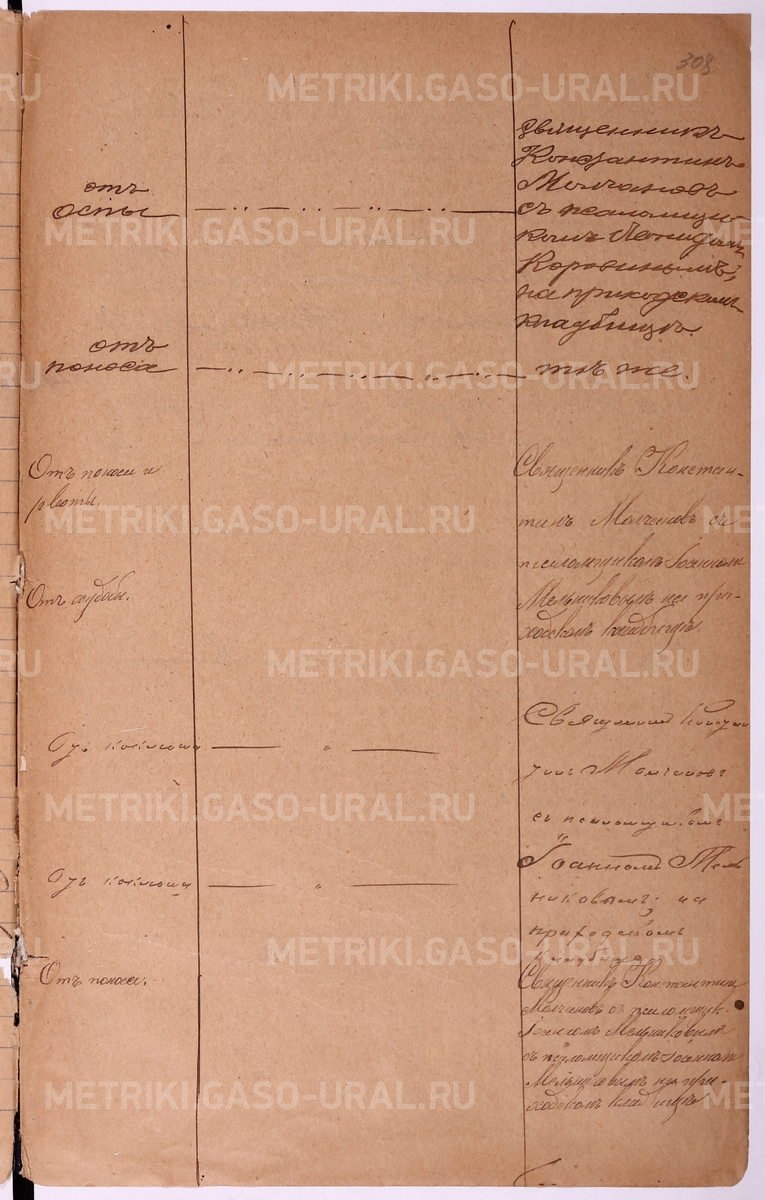 308.
отъ
оспы
Священникъ
Константинъ
Молчановъ
съ псаломщи-
комъ Леонидомъ
Коровинымъ,
на приходскомъ
кладбищѣ.
отъ
поноса
тѣ же.
Отъ поноса и
рвоты.
Священникъ Констан-
тинъ Молчановъ съ
псаломщикомъ Іоанномъ
Мельниковымъ на при-
ходскомъ кладбищѣ
Отъ
Отъ коклюша
Священникъ
тинъ Молчановъ
съ псаломщикомъ
Іоанномъ Мель
никовымъ; на
приходскомъ
кладбищѣ
Отъ коклюша
Отъ поноса.
Священникъ Константинъ
Молчановъ съ псаломщик
Іоанномъ Мельниковымъ
съ псаломщикомъ Іоанномъ
Мельниковымъ на при-
ходскомъ кладбищѣ
METRIKI.GASO-URAL.RU